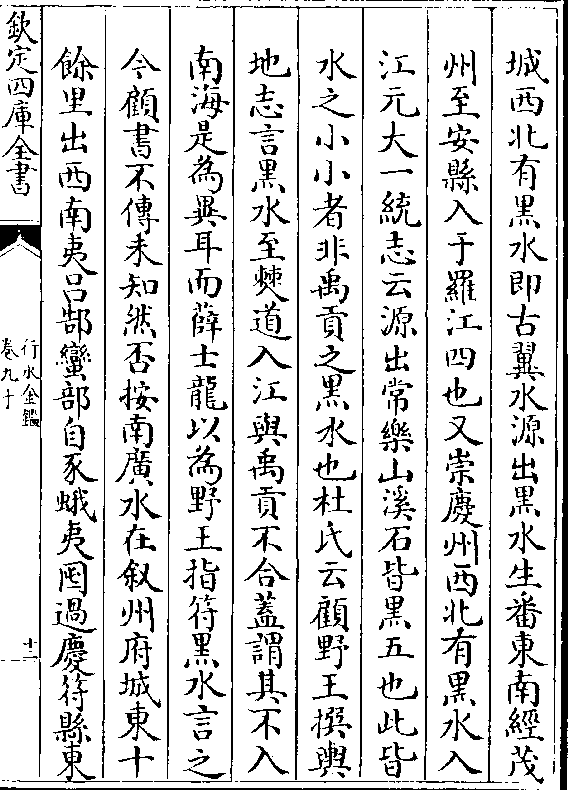 城西北有黒水即古翼水源出黒水生番東南經茂
州至安縣入于羅江四也又崇慶州西北有黒水入
江元大一統志云源出常樂山溪石皆黒五也此皆
水之小小者非禹貢之黒水也杜氏云顧野王撰輿
地志言黒水至僰道入江與禹貢不合蓋謂其不入
南海是為異耳而薛士龍以為野王指符黒水言之
今顧書不傳未知然否按南廣水在叙州府城東十
餘里出西南夷呂郜蠻部自豕蛾夷囤過慶符縣東
欽定四庫全書
行水金鑑
卷九十
十二